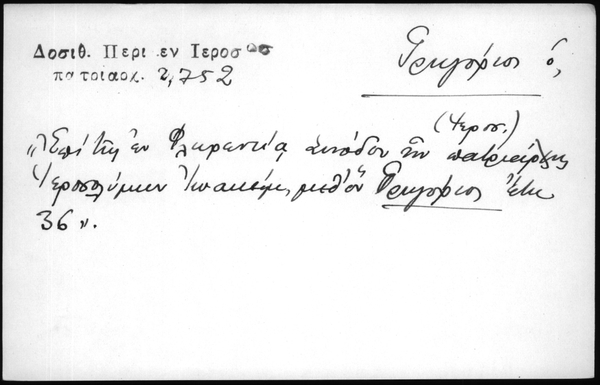 Δοσιθ. Περι εν Ιεροσ
πατριαρχ. 2,752
Γρηγόριος ὁ,
(Ἱεροσ.)
„Ἐπὶ τῆς ἐν Φλωρεντίᾳ Συνόδου ἦν πατριάρχης
Ἱεροσολύμων Ἰωακείμ, μεθ' ὃν Γρηγόριος ἔτη
36".